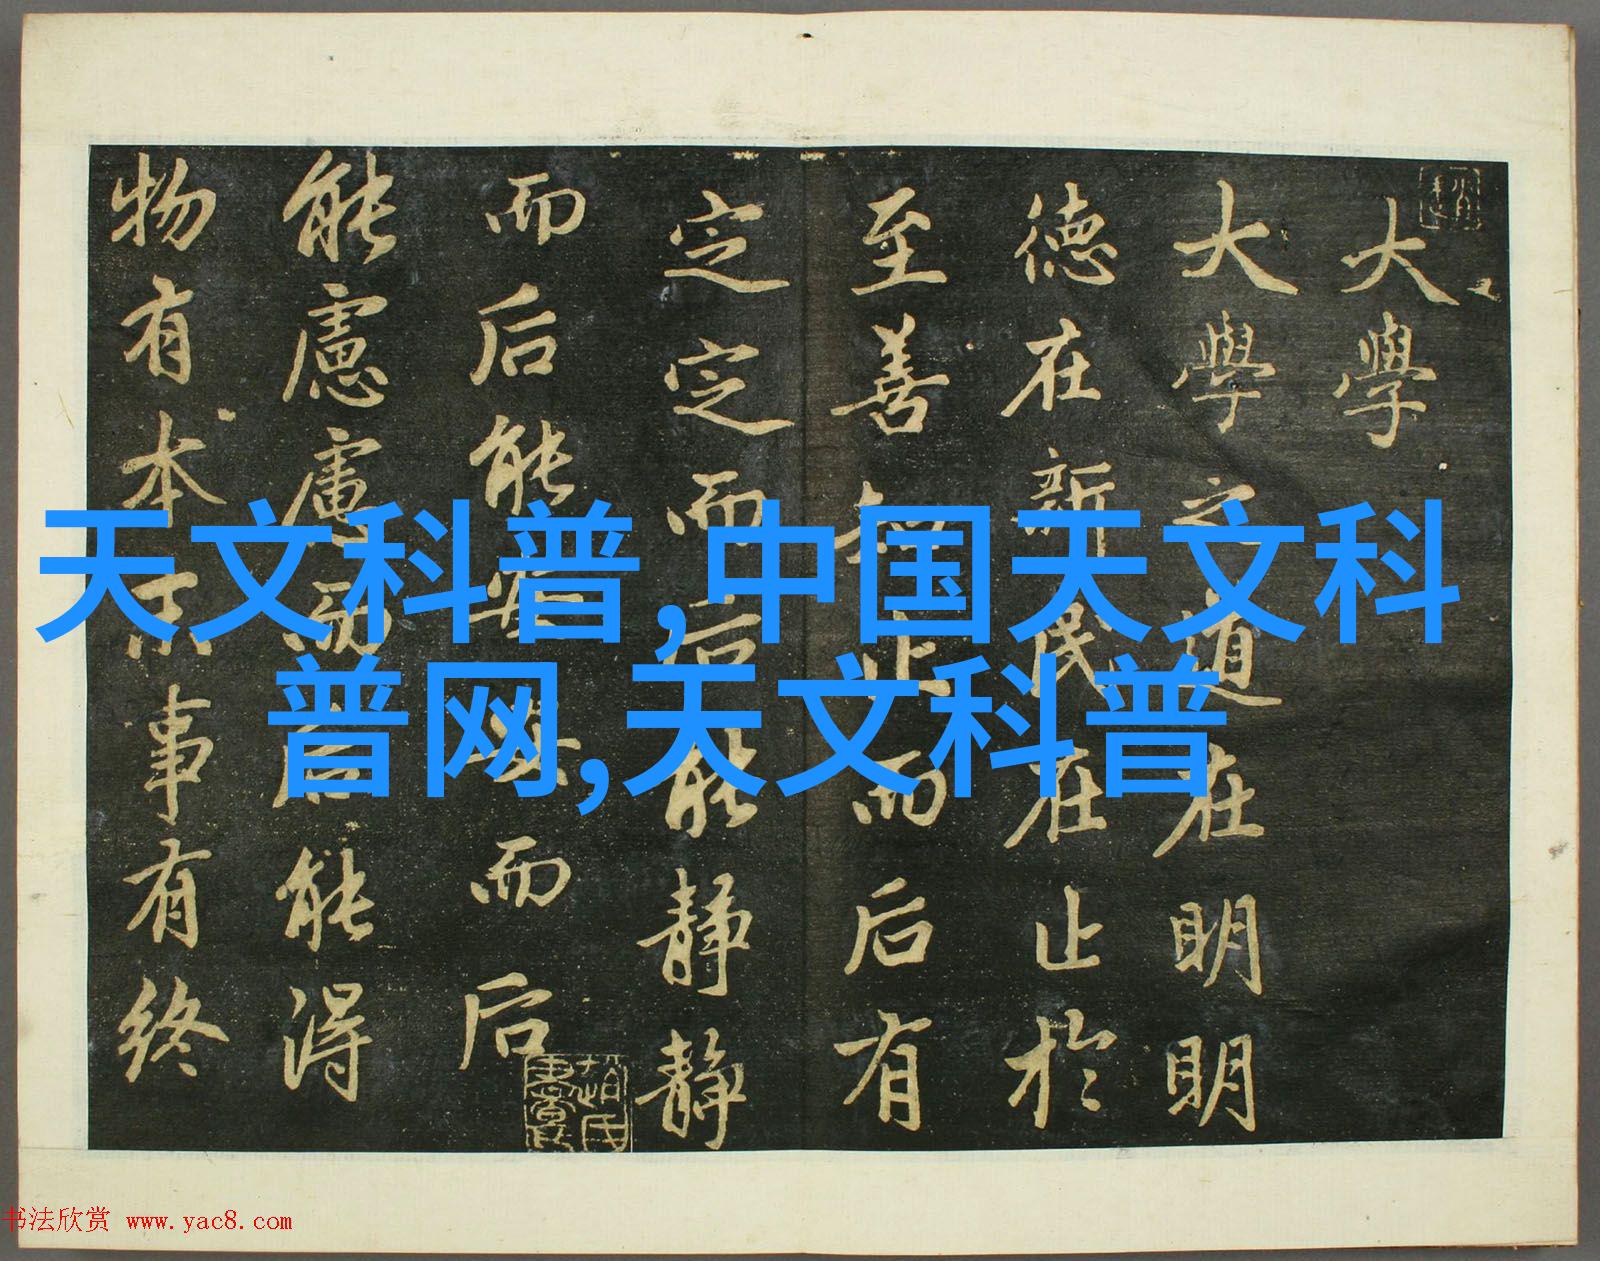 大學
大學之道在明明
德在新民在止於
至善知止而后有
定定而后能靜靜
而后能安安而后
能慮慮而后能得
物有本末事有終
天文科普,中国天文科
普网,天文科普
书法欣赏 www.yac8.com